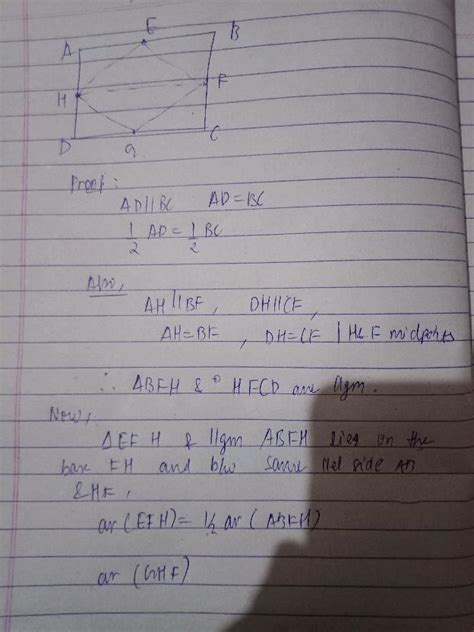 E
B
A
H
F
D
G
C
Proof:
AD||BC   AD=BC
1/2 AD = 1/2 BC
Also,
AH||BF, DH||CF,
AH=BF, DH=CF | H & F midpoints
∴ ABFH & HFCD are ||gm.
Now,
ΔEFH & ||gm ABFH lies on the
base FH and b/w same ||el side AB
& HF,
ar(EFH) = 1/2 ar(ABFH)
ar(GHF)